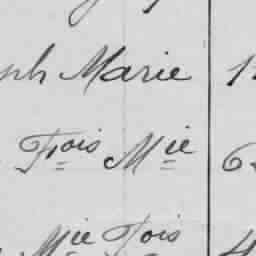 ph Marie 1
Fois Mie 6
Mie Fois 4